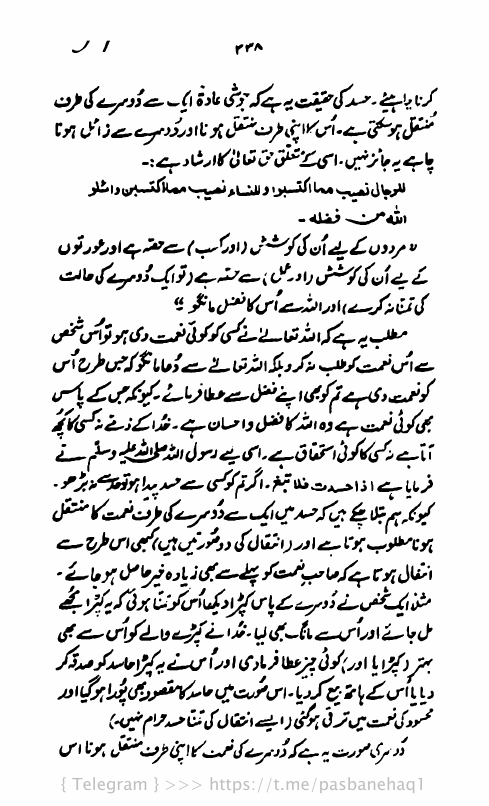 ۲۳۸
کرنا چاہیئے۔ حسد کی حقیقت یہ ہے کہ جو شی عادۃ ایک سے دوسرے کی طرف
منتقل ہو سکتی ہے۔ اُس کا اپنی طرف منتقل ہونا اور دُوسرے سے زائل ہونا
چاہے یہ جائز نہیں۔ اسی کے متعلق حق تعالیٰ کا ارشاد ہے :۔
للرجال نصیب مما اکتسبوا وللنساء نصیب مما اکتسبن واسئلو
اللہ من فضلہ ۔
" مردوں کے لیے اُن کی کوشش (اور کسب) سے حصّہ ہے اور عورتوں
کے لیے اُن کی کوشش (اور عمل) سے حصّہ ہے (تو ایک دُوسرے کی حالت
کی تمنا نہ کرے) اور اللہ سے اُس کا فضل مانگو "
مطلب یہ ہے کہ اللہ تعالےٰ نے کسی کو کوئی نعمت دی ہو تو اُس شخص
سے اُس نعمت کو طلب نہ کرو بلکہ اللہ تعالےٰ سے دُعا مانگو کہ جس طرح اُس
کو نعمت دی ہے تم کو بھی اپنے فضل سے عطا فرمائے۔ کیونکہ جس کے پاس
بھی کوئی نعمت ہے وہ اللہ کا فضل و احسان ہے۔ خدا کے ذمے نہ کسی کا کچھ
آتا ہے نہ کسی کا کوئی استحقاق ہے۔ اسی لیے رسول اللہ صلی اللہ علیہ وسلم نے
فرمایا ہے اذا حسدت فلا تبغ۔ اگر تم کو کسی سے حسد پیدا ہو تو حد سے نہ بڑھو۔
کیونکہ ہم بتلا چکے ہیں کہ حسد میں ایک سے دُوسرے کی طرف نعمت کا منتقل
ہونا مطلوب ہوتا ہے اور (انتقال کی دو صورتیں ہیں) کبھی اس طرح سے
انتقال ہوتا ہے کہ صاحبِ نعمت کو پہلے سے بھی زیادہ خیر حاصل ہو جائے۔
مثلاً ایک شخص نے دُوسرے کے پاس کپڑا دیکھا اُس کو تمنا ہوئی کہ یہ کپڑا مجھے
مل جائے اور اُس سے مانگ بھی لیا۔ خدا نے کپڑے والے کو اُس سے بھی
بہتر (کپڑا یا اور) کوئی چیز عطا فرما دی اور اُس نے یہ کپڑا حاسد کو صدقہ کر
دیا یا اُس کے ہاتھ بیع کر دیا۔ اس صُورت میں حاسد کا مقصود بھی پُورا ہو گیا اور
محسود کی نعمت میں ترقی ہو گئی (ایسے انتقال کی تمنا حسد حرام نہیں۔)
دُوسری صورت یہ ہے کہ دُوسرے کی نعمت کا اپنی طرف منتقل ہونا اس
{ Telegram } >>> https://t.me/pasbanehaq1